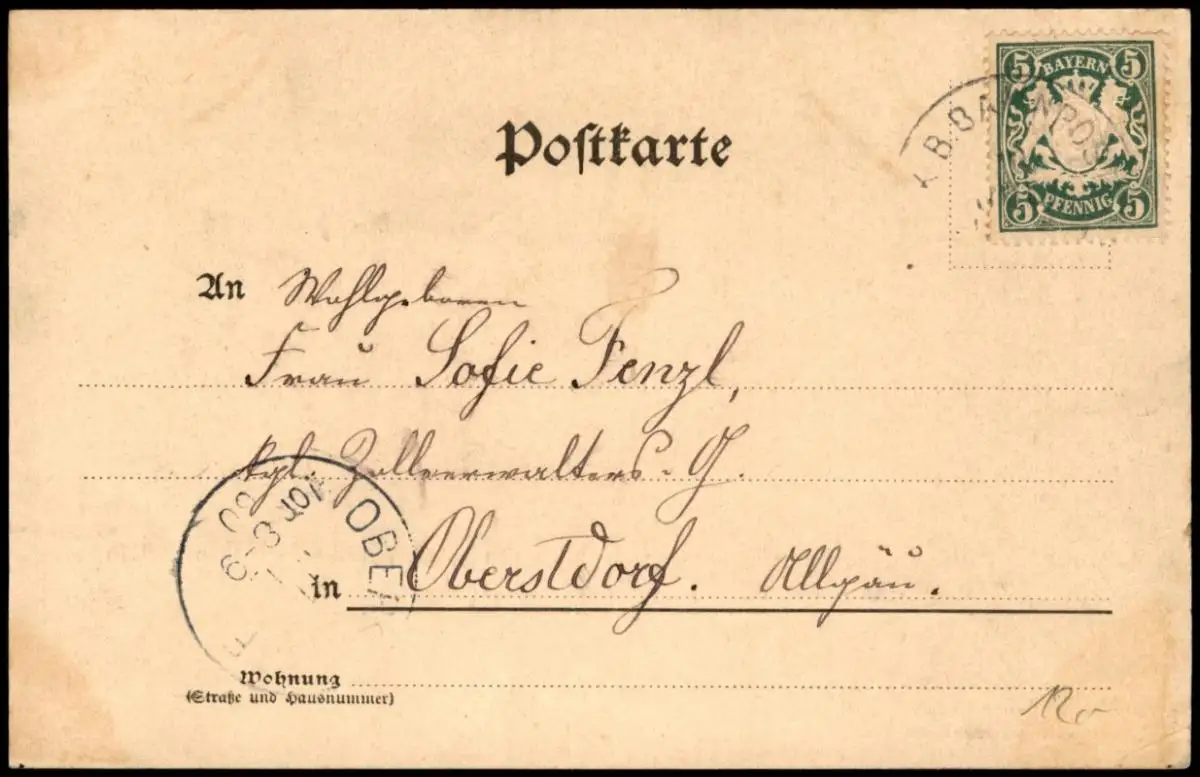 Postkarte
5 BAYERN 5
5 PFENNIG 5
K.B.BAHNPOST
An Wohlgeboren
Frau Sofie Fenzl,
kgl. Zollverwalters-G.
in Oberstdorf. Allgäu.
OBER
Wohnung
(Straße und Hausnummer)